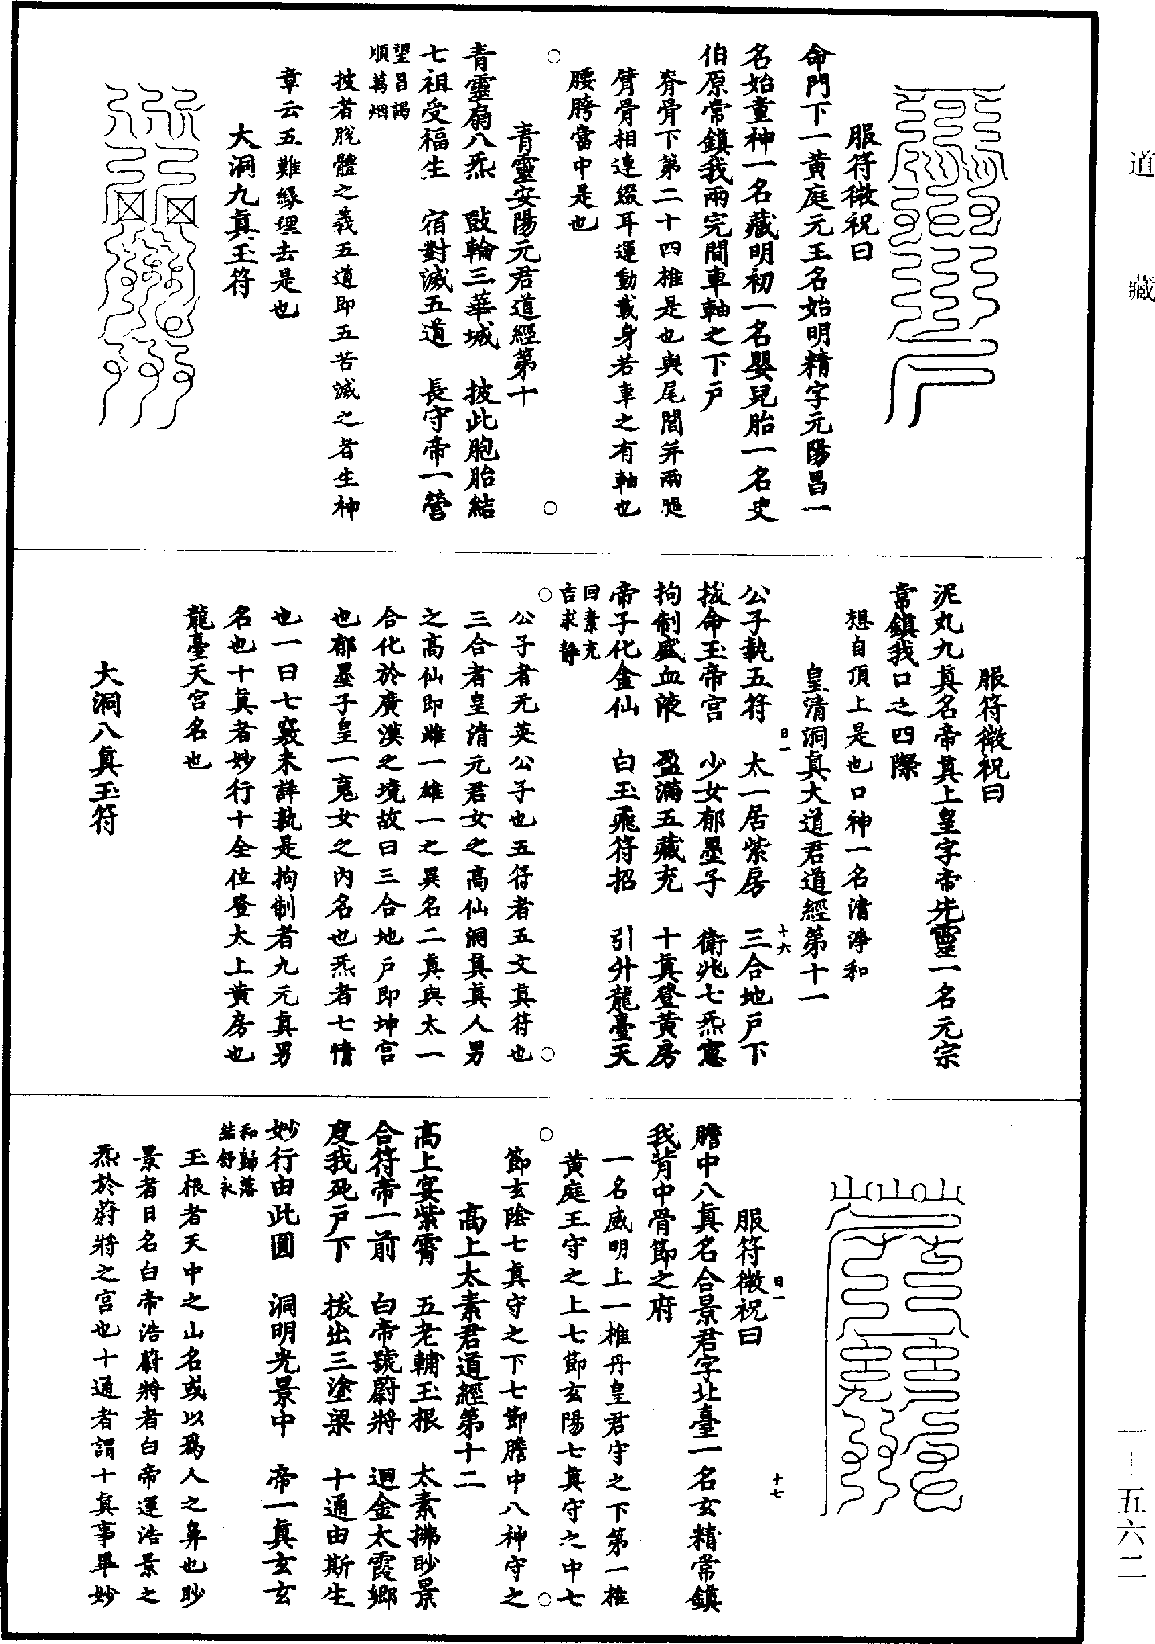 道藏
服符微祝曰
命門下一黃庭元王名始明精字元陽昌一
名始童神一名藏明初一名嬰兒胎一名史
伯原常鎮我兩完間車軸之下戶
脊骨下第二十四椎是也與尾閭并兩腿
臂骨相連綴耳運動載身若車之有軸也
腰胯當中是也
青靈安陽元君道經第十
青靈扇八炁　鼓輪三華城　披此胞胎結
七祖受福生　宿對滅五道　長守帝一營
望昌謁
順萬烟
披者脫體之義五道即五苦滅之者生神
章云五難緣理去是也
大洞九真玉符
服符微祝曰
泥丸九真名帝其上皇字帝先靈一名元宗
常鎮我口之四際
想自頂上是也口神一名清淨和
皇清洞真大道君道經第十一
公子執五符　太一居紫房　三合地戶下
拔命玉帝宮　少女郁墨子　衛兆七炁窓
拘制盛血液　盈滿五藏充　十真登黃房
帝子化金仙　白玉飛符招　引升龍臺天
日一
十六
回素充
吉求靜
公子者无英公子也五符者五文真符也
三合者皇清元君女之高仙洞真真人男
之高仙即雌一雄一之異名二真與太一
合化於廣漠之境故曰三合地戶即坤宮
也郁墨子皇一䰟女之內名也炁者七情
也一曰七竅未詳孰是拘制者九元真男
名也十真者妙行十全位登太上黃房也
龍臺天宮名也
大洞八真玉符
服符微祝曰
日一
十七
膽中八真名合景君字北臺一名玄精常鎮
我背中骨節之府
一名威明上一椎丹皇君守之下第一椎
黃庭王守之上七節玄陽七真守之中七
節玄陰七真守之下七節膽中八神守之
高上太素君道經第十二
高上宴紫霄　五老輔玉根　太素拂眇景
合符帝一前　白帝號蔚將　迴金太霞鄉
度我死戶下　拔出三塗梁　十通由斯生
妙行由此圓　洞明光景中　帝一真玄玄
和歸落
結舒永
玉根者天中之山名或以爲人之鼻也眇
景者日名白帝浩蔚將者白帝運浩景之
炁於蔚將之宮也十通者謂十真事畢妙
一-五六二